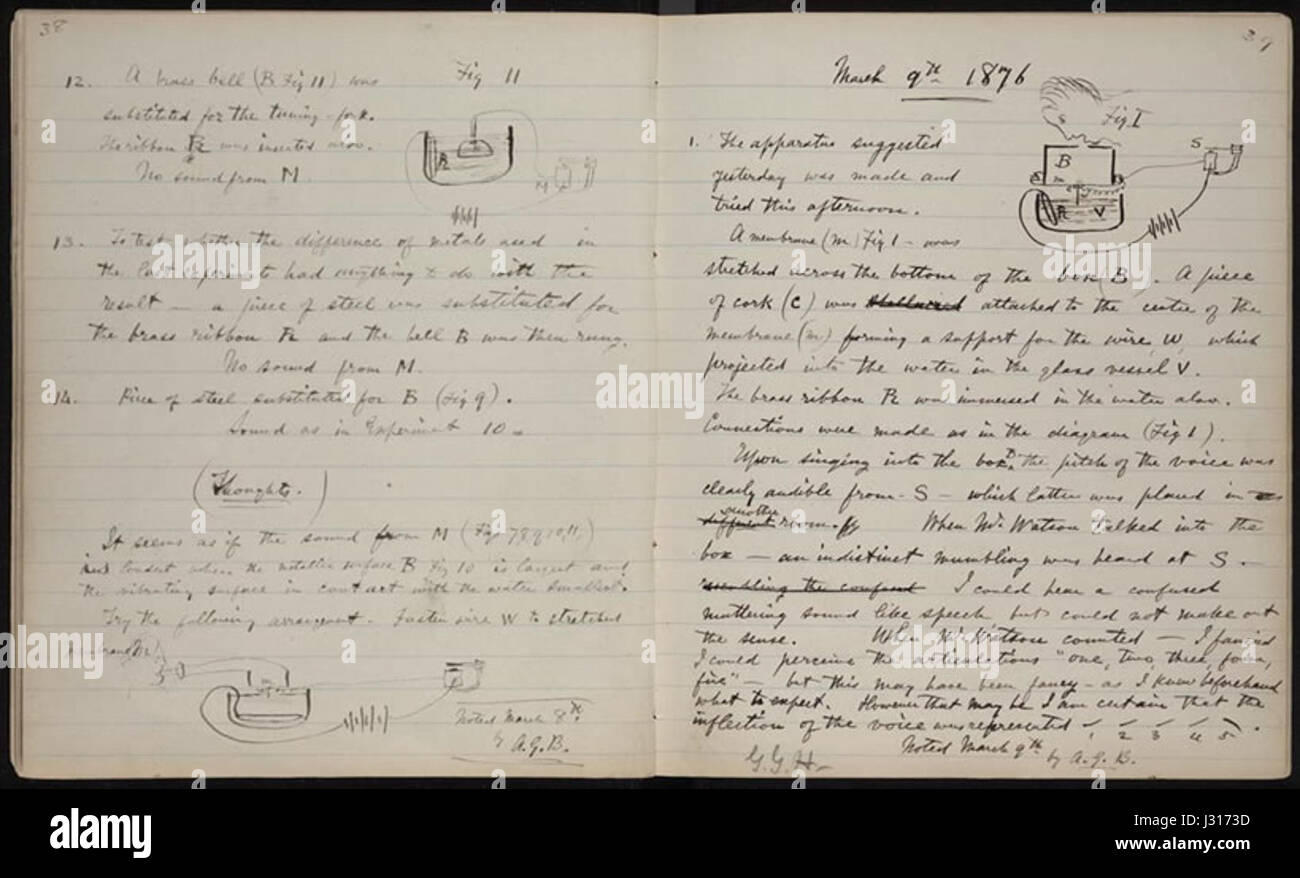 38
12. A brass bell (B Fig 11) was
substituted for the tuning-fork.
The ribbon R was inserted also.
No sound from M.
Fig 11
R
B
M
13. To test whether the difference of metals used in
the last experiments had anything to do with the
result — a piece of steel was substituted for
the brass ribbon R and the bell B was then rung.
No sound from M.
14. Piece of steel substituted for B (Fig 9).
Sound as in Experiment 10 —
(Thoughts.)
It seems as if the sound from M (Fig 7,8,9,10,11,)
loudest when the metallic surface B Fig 10 is largest and
the vibrating surface in contact with the water smallest.
Try the following arrangement. Fasten wire W to stretched
membrane
Noted March 8th
by A.G.B.
39
March 9th 1876
Fig. I
S
B
m
R
V
1. The apparatus suggested
yesterday was made and
tried this afternoon.
A membrane (m) Fig 1 — was
stretched across the bottom of the box (B). A piece
of cork (C) was attached to the centre of the
membrane (m) forming a support for the wire W, which
projected into the water in the glass vessel V.
The brass ribbon R was immersed in the water also.
Connections were made as in the diagram (Fig 1).
Upon singing into the box, the pitch of the voice was
clearly audible from - S - which latter was placed in
another
different room. When Mr Watson talked into the
box — an indistinct mumbling was heard at S. —
resembling the confused I could hear a confused
muttering sound like speech but could not make out
the sense. When Mr Watson counted — I fancied
I could perceive the articulations "one, two, three, four,
five" — but this may have been fancy — as I knew beforehand
what to expect. However that may be I am certain that the
inflection of the voice was represented 1 2 3 4 5.
Noted March 9th
by A.G.B.
G.G.H—
alamy
a
alamy stock photo
J3173D
www.alamy.com